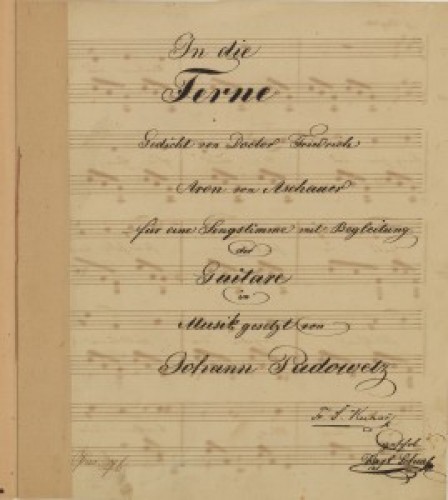 In die
Ferne
Gedicht von Doctor Friedrich
Aron von Aschauer
für eine Singstimme mit Begleitung
der
Guitare
in
Musik gesetzt von
Johann Padowetz